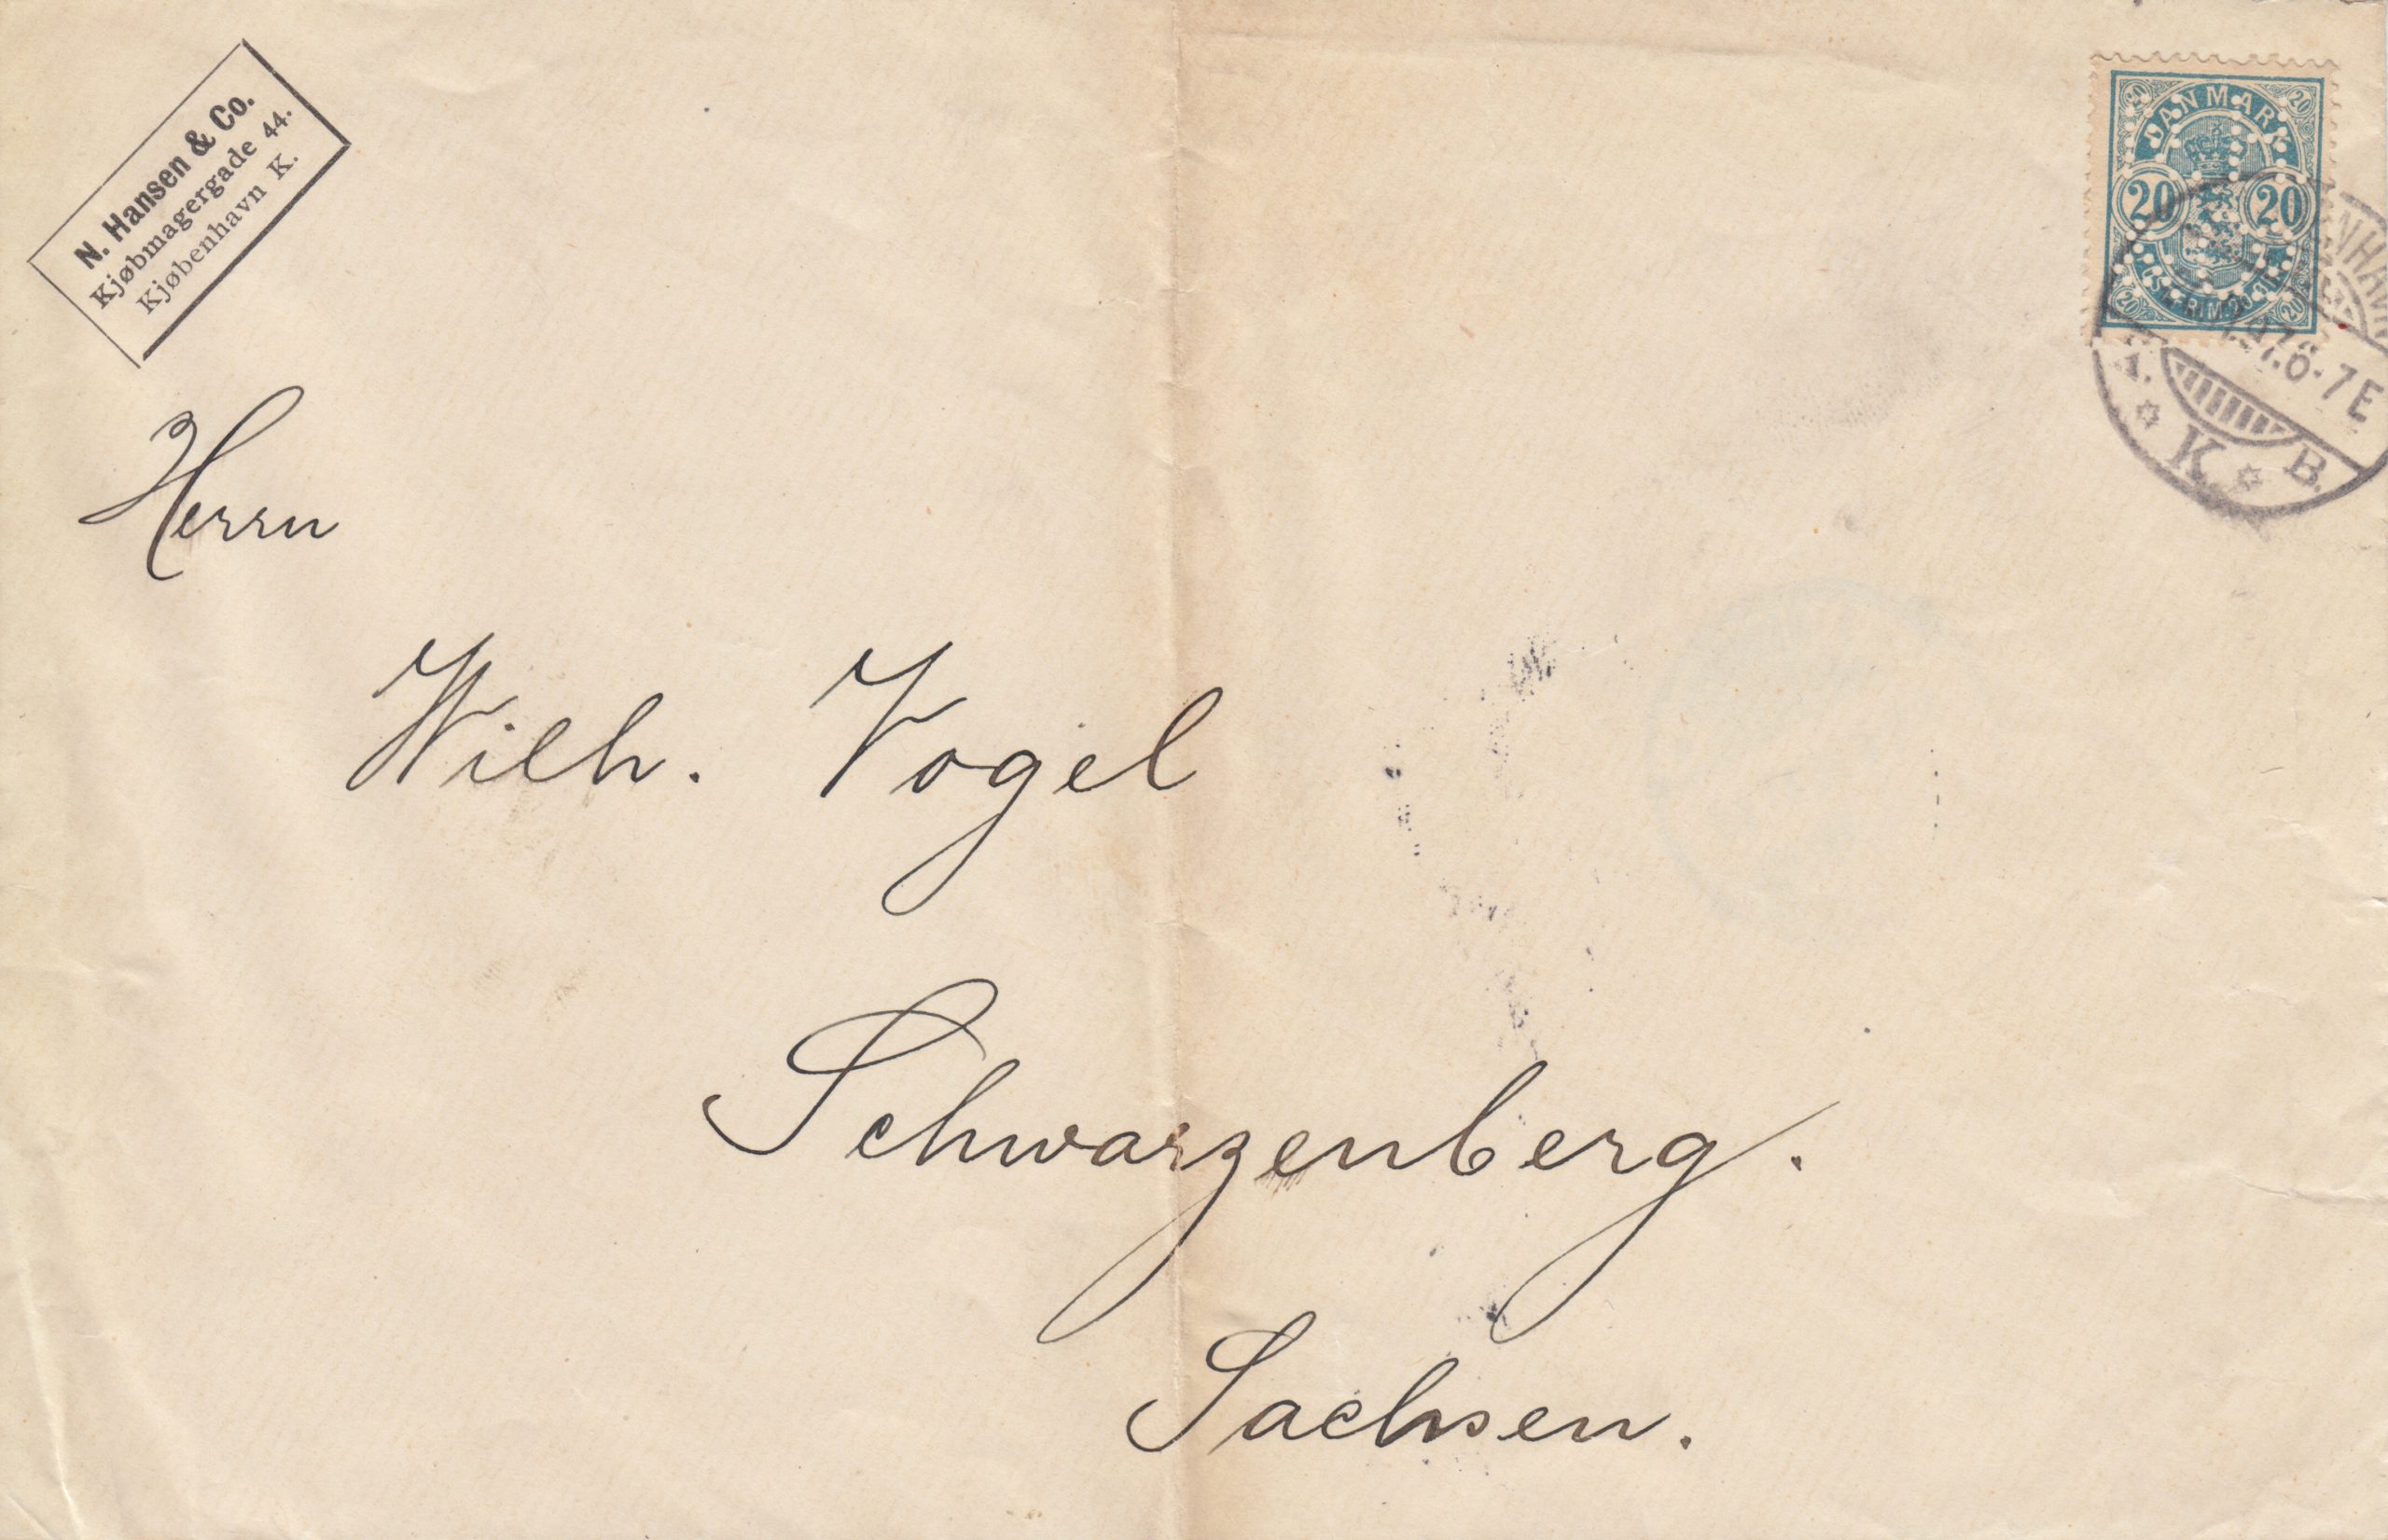 N. Hansen & Co.
Kjøbmagergade 44.
Kjøbenhavn K.
DANMARK
20 20
20 20
20 20
6-7E
K. B.
Herrn
Wilh. Vogel
Schwarzenberg.
Sachsen.